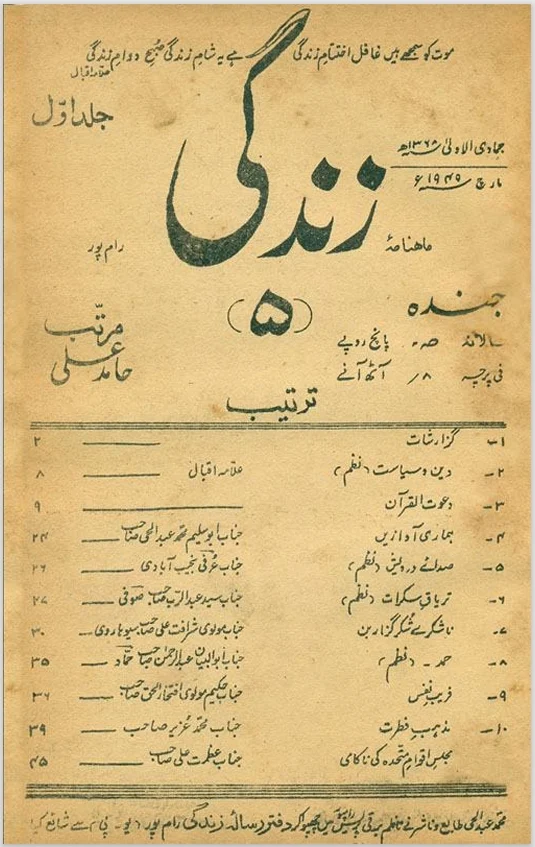 موت کو سمجھے ہیں غافل اختتامِ زندگی ہے یہ شامِ زندگی صُبحِ دوامِ زندگی
علّامہ اقبال
جلد اوّل
جمادی الاولیٰ ۱۳۶۸ھ
مارچ ۱۹۴۹ء
ماہنامۂ
زندگی
رام پور
(۵)
چندہ
سالانہ صہ پانچ روپے
فی پرچہ ۸/ آٹھ آنے
مرتّب
حامد علی
ترتیب
۱- گزارشات ۲
۲- دین و سیاست (نظم) علّامہ اقبال ۸
۳- دعوت القرآن ۹
۴- ہماری آوازیں جناب ابو سلیم محمد عبدالحی صاحب ۲۴
۵- صدائے درویش (نظم) جناب عُرفی نجیب آبادی ۲۶
۶- تریاقِ سکرات (نظم) جناب سید عبدالرب صاحب صوفی ۲۷
۷- ناشکرے شکر گزار بن جناب مولوی شرافت علی صاحب سیوہاروی ۳۰
۸- حمد - (نظم) جناب ابوالبیان عبدالرحمٰن صاحب حمّاد ۳۵
۹- فریبِ نفس جناب حکیم مولوی افتخار الحق صاحب ۳۶
۱۰- مذہبِ فطرت جناب محمد عزیز صاحب ۳۹
مجلس اقوامِ متّحدہ کی ناکامی جناب عظمت علی صاحب ۴۵
محمد عبدالحی طابع و ناشر نے ناظم برقی پریس رامپور میں چھپوا کر دفتر رسالہ زندگی رام پور (یو۔ پی) سے شائع کیا